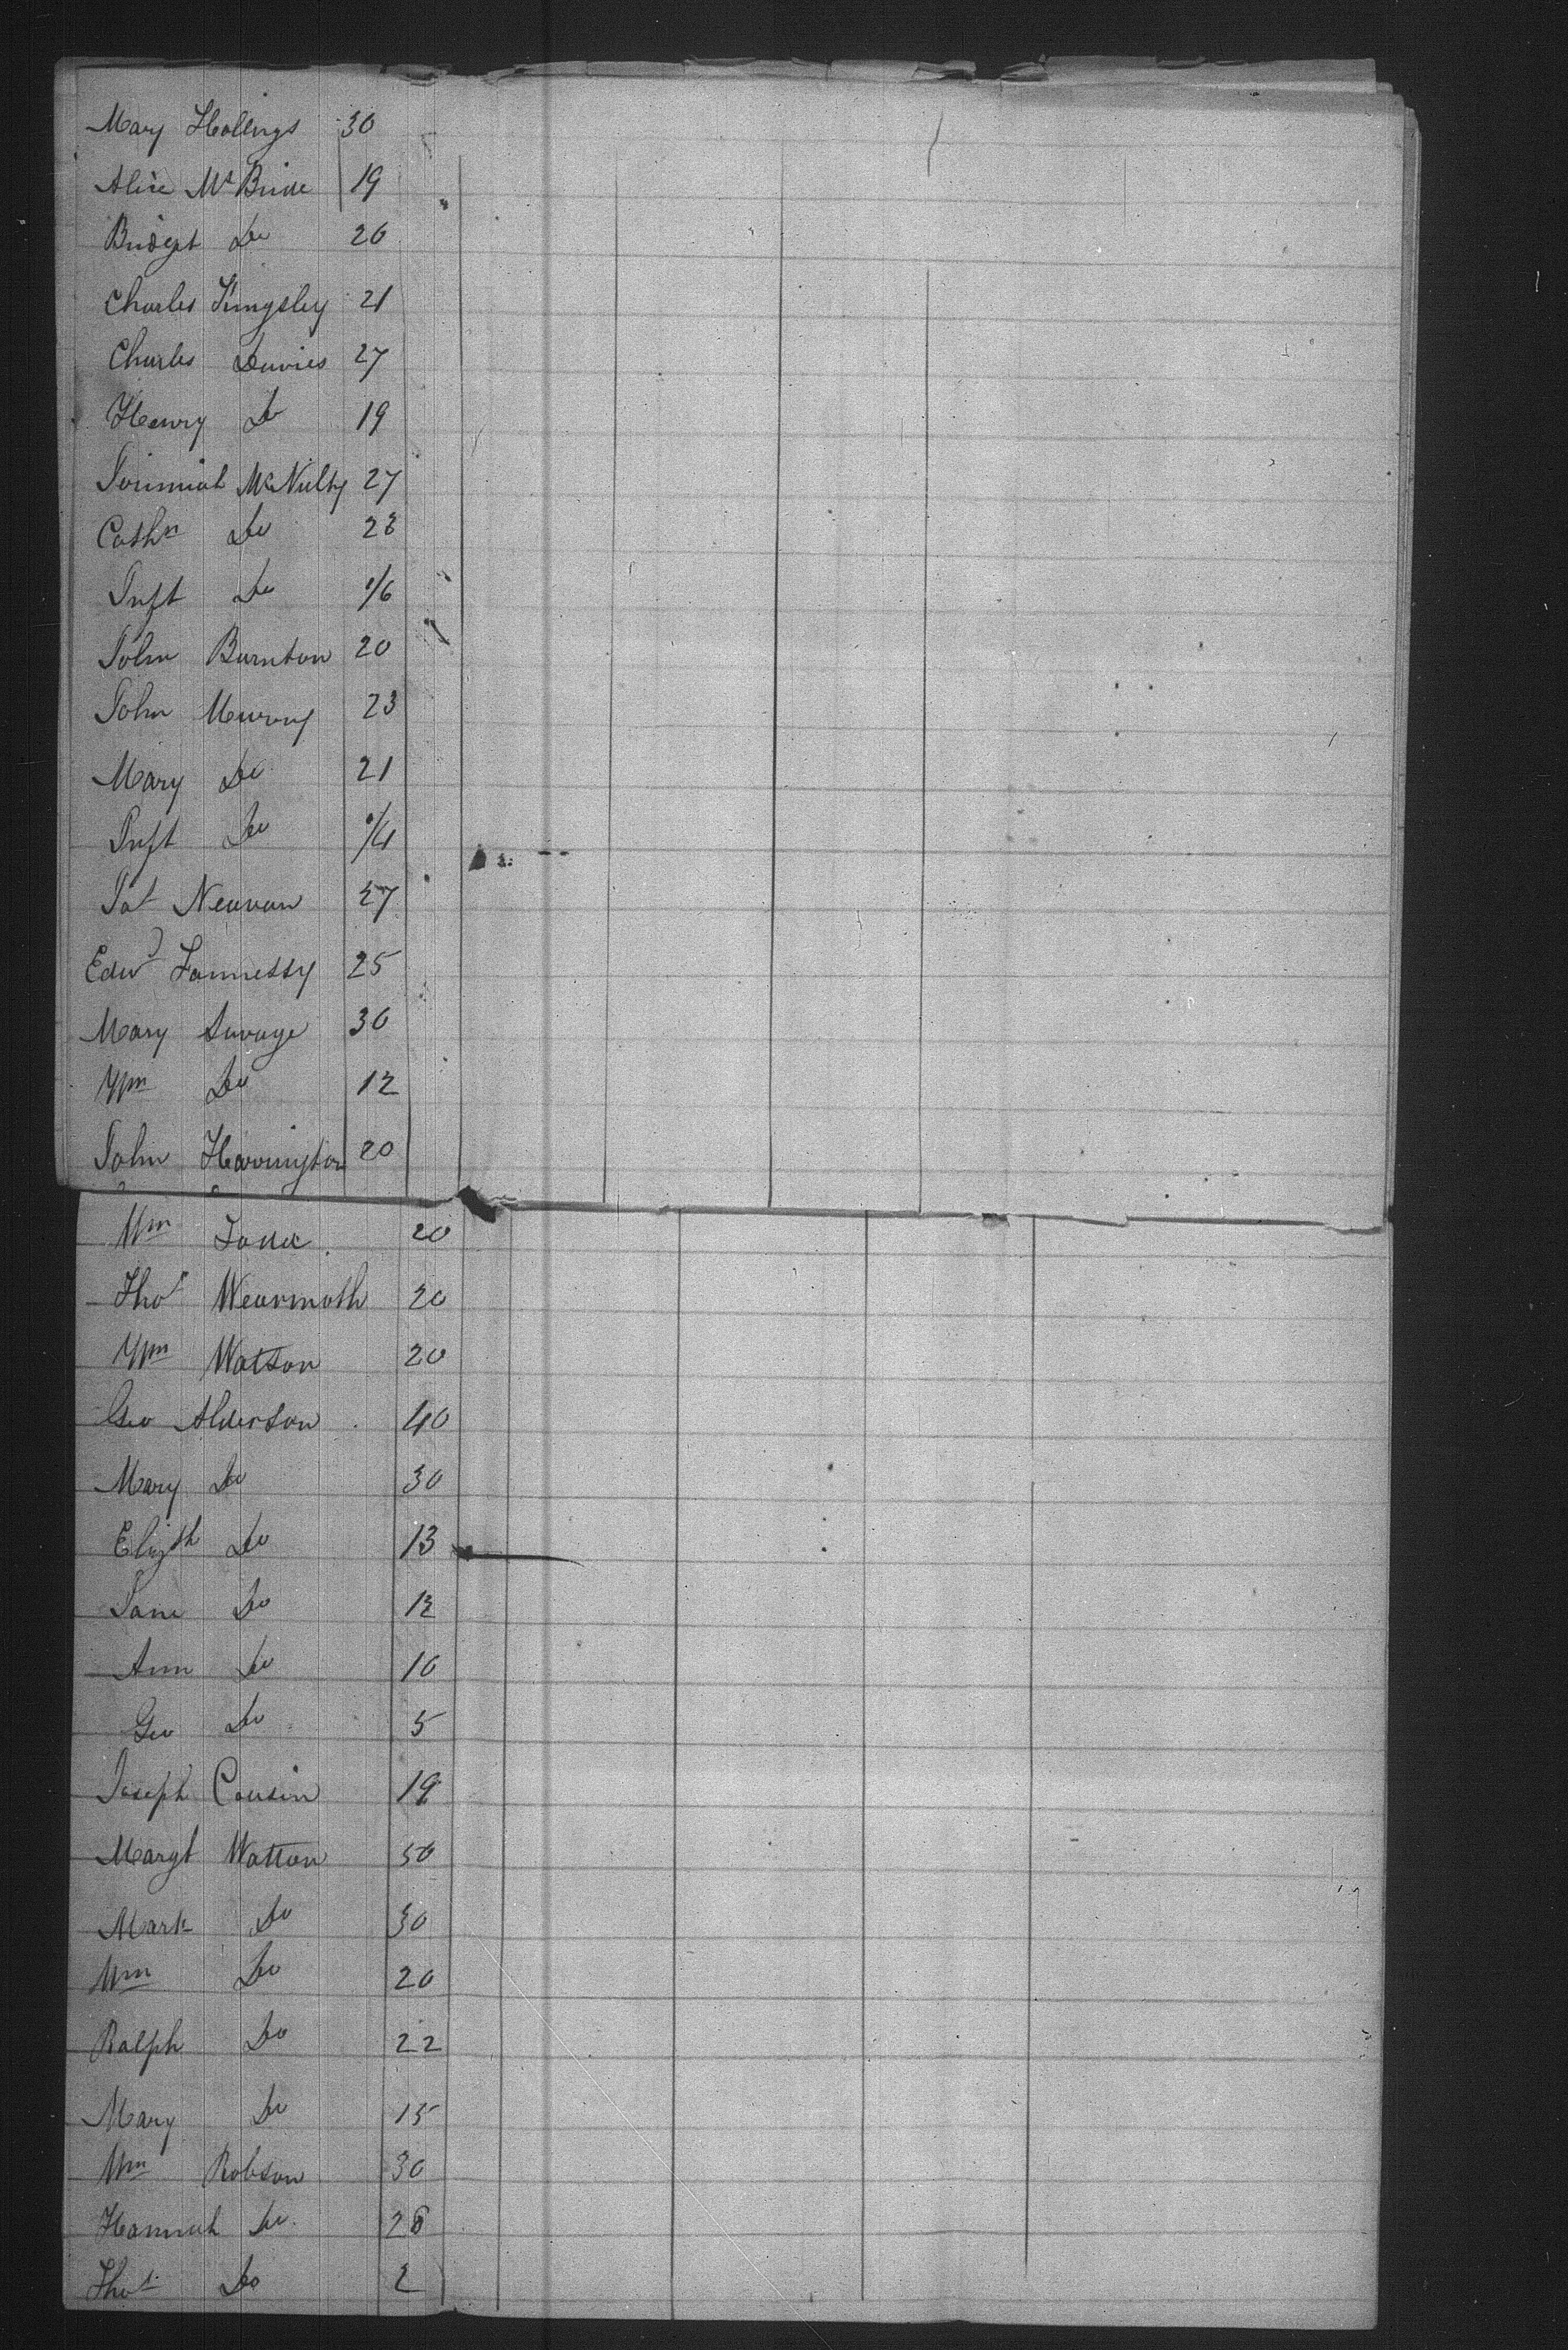 Mary Hollings 30
Alice McBride 19
Bridget Do 20
Charles Kingsley 21
Charles Davies 27
Henry Do 19
Jerimiah McNulty 27
Cathn Do 23
Inft Do /6
John Burnton 20
John Murray 23
Mary Do 21
Inft Do /4
Pat 27
Edwd Fannessy 25
Mary Savage 30
Wm Do 12
John Harrington 20
Wm 20
Thos Wearmoth 20
Wm Watson 20
Geo Alderson 40
Mary Do 30
Elizth Do 13
Jane Do 12
Ann Do 10
Geo Do 5
Joseph Cousin 19
Margt Watton 50
Mark Do 30
Wm Do 20
Ralph Do 22
Mary Do 15
Wm Robson 30
Hannah Do 28
Thos Do 2